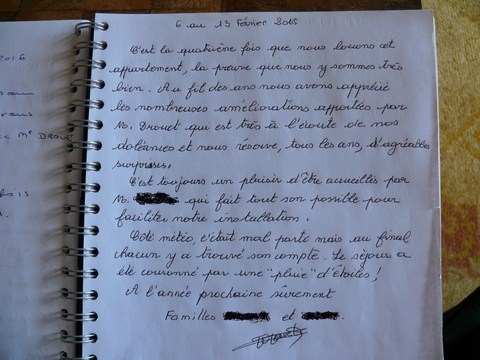 6 au 13 Février 2016
C'est la quatrième fois que nous louons cet
appartement, la preuve que nous y sommes très
bien. Au fil des ans nous avons apprécié
les nombreuses améliorations apportées par
M. Drouet qui est très à l'écoute de nos
doléances et nous réserve, tous les ans, d'agréables
surprises.
C'est toujours un plaisir d'être accueillis par
M. qui fait tout son possible pour
faciliter notre installation.
Côté météo, c'était mal parti mais au final
chacun y a trouvé son compte. Le séjour a
été couronné par une "pluie" d'étoiles!
A l'année prochaine sûrement
Familles et .
2016